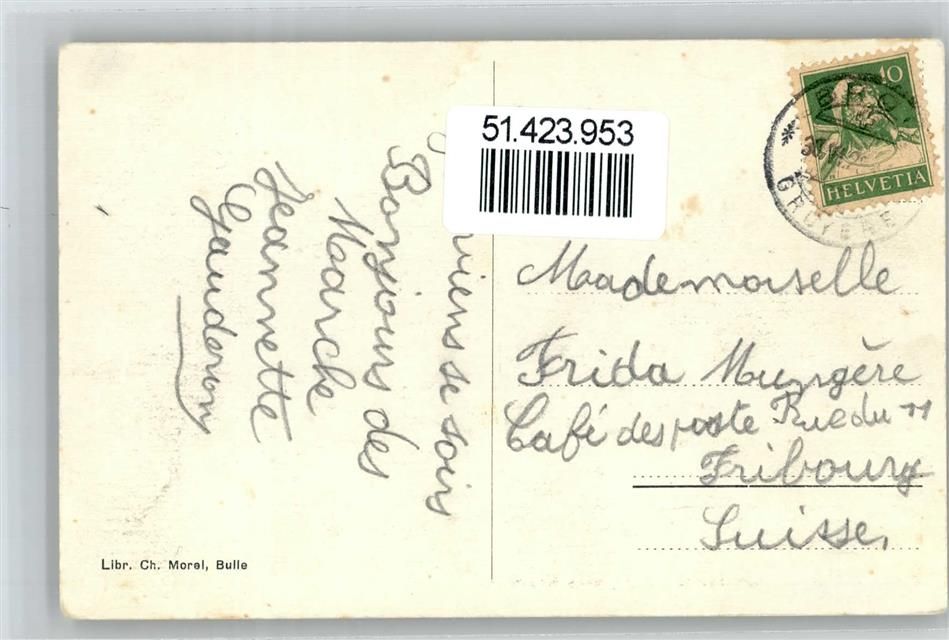 51.423.953
10
HELVETIA
GRUYERE
viens se soir
Bonjours des
Marche
Jeannette
Gauderon
Maademoiselle
Frida Mungère
Café des poste Rue du
Fribourg
Suisse,
Libr. Ch. Morel, Bulle